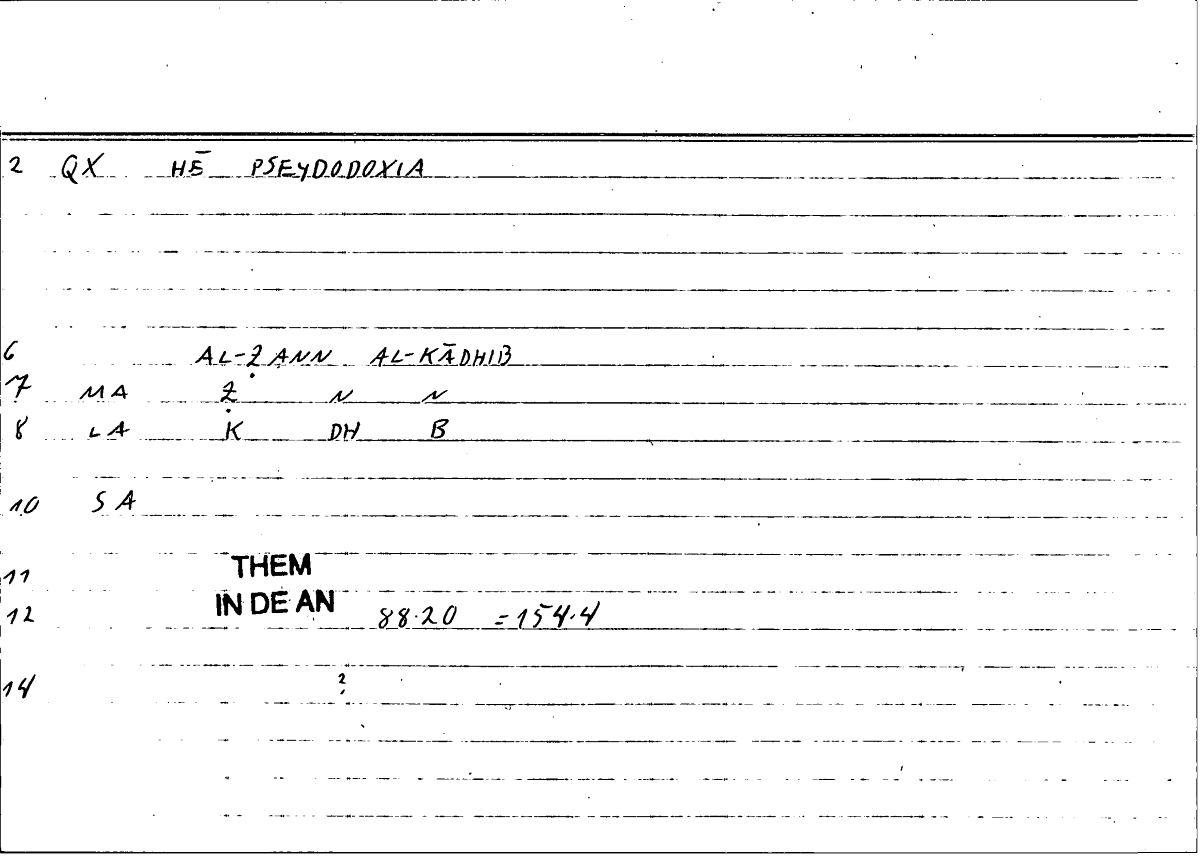 2 QX HĒ PSEYDODOXIA
6 AL-ẒANN AL-KĀDHIB
7 MA Ẓ N N
8 LA K DH B
10 SA
11 THEM
12 IN DE AN 88.20 =154.4
14 2